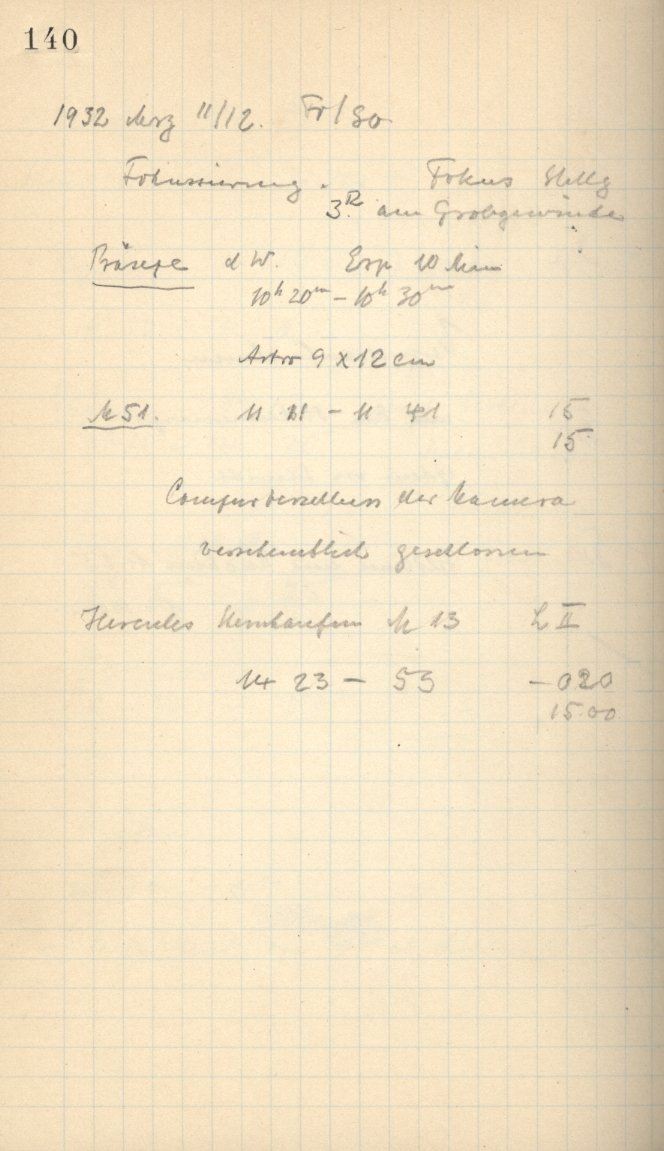 140
1932 März 11/12. Fr/So
Fokussierung. Fokus Stellg
3. am Grobgewinde
Präsepe d W. Exp 10 Min
10h 20m - 10h 30m
Astro 9 x 12 cm
M 51. 11 11 - 11 41 15
15
Compurverschluss der Kamera
versehentlich geschlossen
Hercules Sternhaufen M 13 L II
14 23 - 53 - 020
15.00